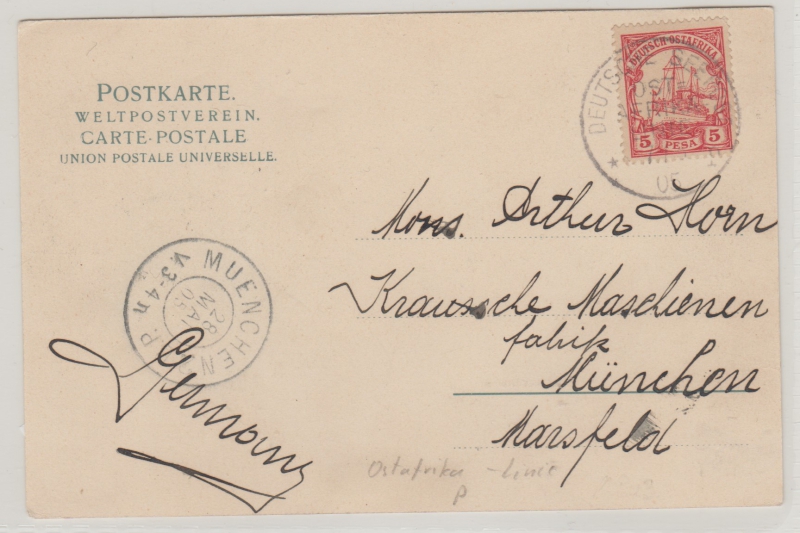 POSTKARTE.
WELTPOSTVEREIN.
CARTE-POSTALE
UNION POSTALE UNIVERSELLE.
DEUTSCH-OSTAFRIKA
5 PESA 5
DEUTSCHE SEEPOST
OST-
AFRIKA
05
Mons. Arthur Horn
Kraussche Maschienen
fabrik
München
Marsfeld
MUENCHEN
V.3-4 n
28
MAI
05
P.
Germany
Ostafrika - Linie
P